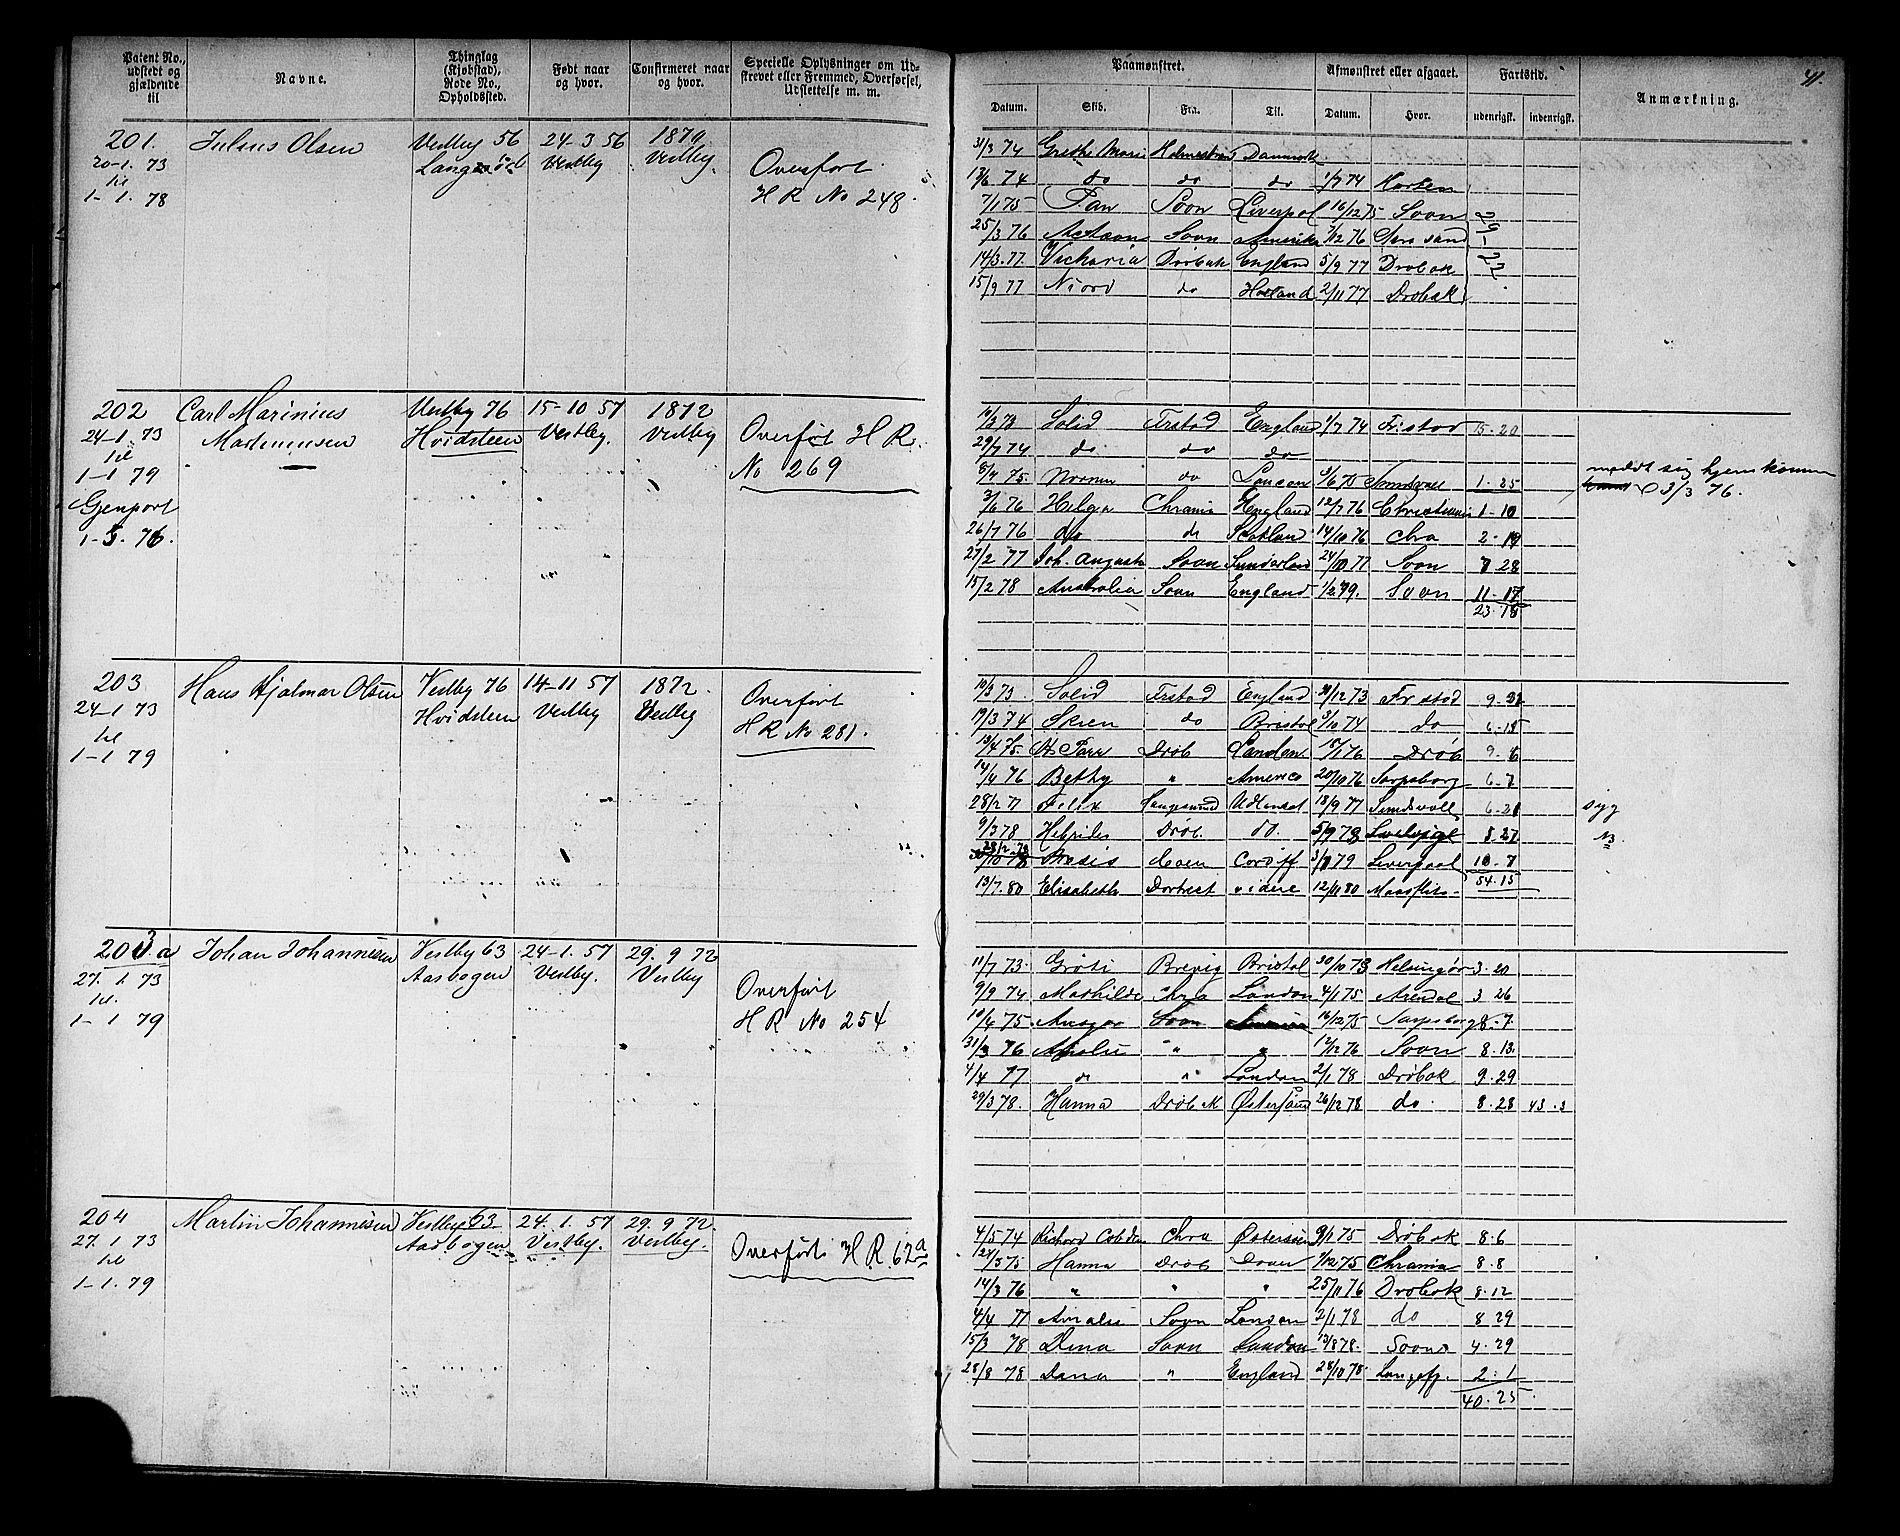 Patent No., udstedt og gjældende til
Navne.
Thinglag (Kjøbstad), Rode No., Opholdssted.
Født naar og hvor.
Confirmeret naar og hvor.
Specielle Oplysninger om Udskrevet eller Fremmed, Overførsel, Udslettelse m. m.
201. Julius Olsen Vestby 56 24-3 56 1870
20-1. 73 Vestby Vestby.
til Overført
1-1. 78 H R No 248.
202 Carl Marinius Vestby 76 15-10 57 1872
24-1. 73 Martinusen Hvidsteen Vestby. Vestby Overført H R.
til No 269
1-1 79
Gjenport
1-5. 76.
203 Hans Hjalmar Olsen Vestby 76 14-11 57 1872.
24-1 73 Hvidsteen Vestby Vestby Overført
til H R No 281.
1-1 79
203a Johan Johannesen Vestby 63 24-1. 57 29. 9 72
27. 1. 73 Aasbogen Vestby. Vestby
til. Overført
1-1 79 H R No 254
204 Martin Johannesen Vestby 63 24. 1. 57 29. 9 72.
27. 1 73 Aasbogen Vestby. Vestby.
til Overført H R. 62a
1-1. 79
41.
Paamønstret.
Afmønstret eller afgaaet.
Fartstid.
Anmærkning.
Datum. Skib. Fra. Til. Datum. Hvor. udenrigsk. indenrigsk.
31/3 74 Grethe Marie Holmestrand Danmark
13/6 74 do do do 1/7 74 Horten
7/1 75 Pan Soon Liverpol 16/12 75 Soon
25/3 76 Soon Amerika 7/12 76
14/3. 77. Victoria Drøbak England 5/9 77 Drøbak
15/9 77 Niord do Holland 2/11 77 Drøbak
10/3 73 Solid Frstad England 1/7 74 Frstad 15. 20
29/7 74 do do do
8/4 75. Norman do 9/6 75 1. 25 meldt sig hjemkommen
3/6 76 Helga Chrania England 12/7 76 Christiania 1-10 3/3 76.
26/7 76 do do Skotland 14/10 76 Chra 2-19
27/2 77 Joh. August Soon Sunderland 24/10 77 Soon 7 28
15/2 78 Australia Soon England 1/2 79. Soon 11-17
23. 18
10/3 73. Solid Frstad England 30/12 73 Frstad
19/3 74 Skien do Bristol 9/10 74 do 6-15
13/4 75. Drøb London 18/1 76 Drøb 9. 6
14/4 76 Bethy " America 20/10 76 Sarpsborg 6-7
28/2 77 Felix Langesund Udlandet 18/9 77 Sundsvall syg
9/3 78 Hebrides Drøb. do. 5/9 78 8. 27
Cardiff 79 Liverpool 10. 7
54. 15
13/7. 80 Elisabeth Dortrect videre 12/11 80
11/7 73. Brevig Bristol 30/10 73 Helsingør 3. 20
9/9 74 Mathilde Chra London 4/1 75 Arendal 3 26
10/4 75. Ansgar Soon 16/12 75 Sarpsborg 8. 7.
31/3 76 Amalie " " 12/12 76 Soon 8. 13.
4/4 77 do " London 2/1 78 Drøbak 9. 29
29/3 78. Hanna Drøbak Østersøen 26/12 78 do. 8. 28 43. 3
4/5 74 Richard Cobden Chra Østersøen 9/1 75 Drøbak 8. 6
24/3 75 Hanna Drøb Dover 7/12 75 Chrania 8. 8
14/3 76 " " " 25/11 76 Drøbak 8. 12
4/4 77 Amalie Soon London 2/1 78 do 8 29
15/3 78 Dina Soon London 13/8 78. Soon 4. 29
28/8 78 Dana " England 28/10 78. Langesf. 2. 1
40. 25